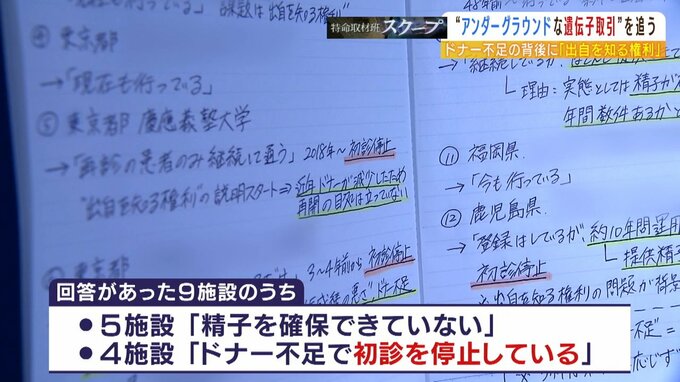 特命取材班 スクープ
“アンダーグラウンドな遺伝子取引”を追う
ドナー不足の背後に「出自を知る権利」
東京都
→「現在も行っている」
⑤ 東京都 慶應義塾大学
→“再診の患者のみ継続して追う” 2018年〜初診停止
“出自を知る権利”の説明スタート⇒近年ドナーが減少したため
再開の目処は立っていない
東京都
3〜4年前から 初診停止
└ 理由:実態としては精子が
年間数件あるかと
⑪ 福岡県
→「今も行っている」
⑫ 鹿児島県
→「登録はしているが、約10年間運用
初診停止
└ 提供精子
出自を知る権利の問題が背景
回答があった9施設のうち
●5施設「精子を確保できていない」
●4施設「ドナー不足で初診を停止している」